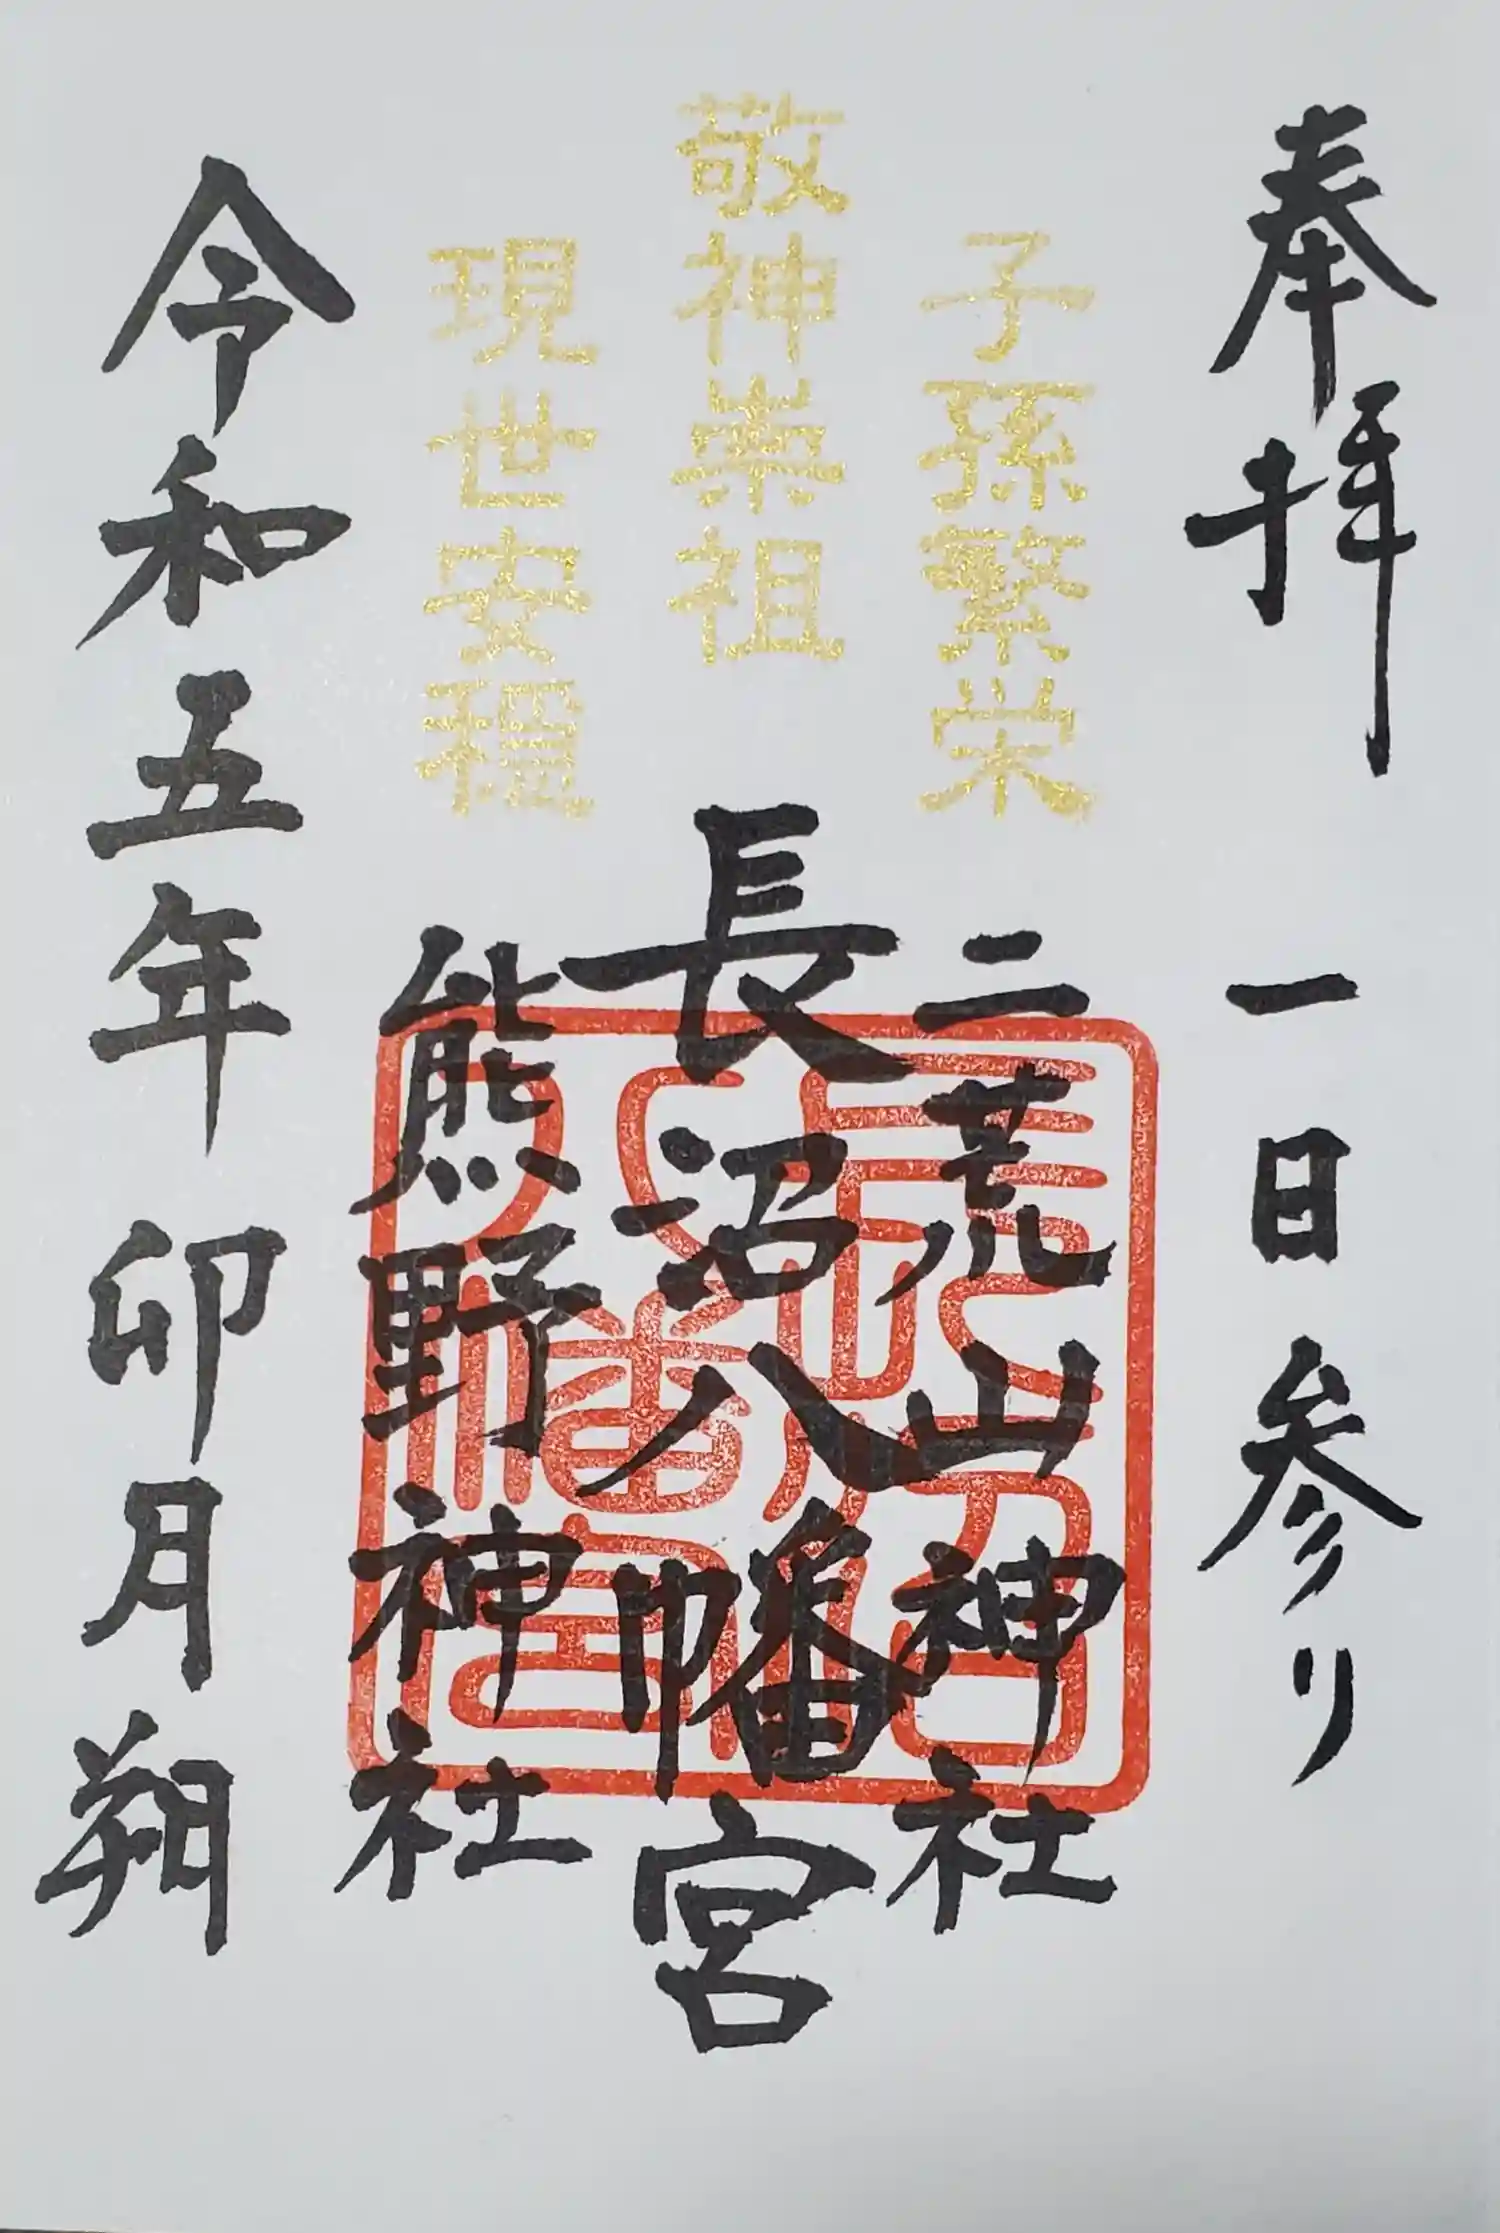 奉拝 一日参り
子孫繁栄
二荒山神社
敬神崇祖
長沼八幡宮
現世安穏
熊野神社
令和五年 卯月朔
長沼八幡宮